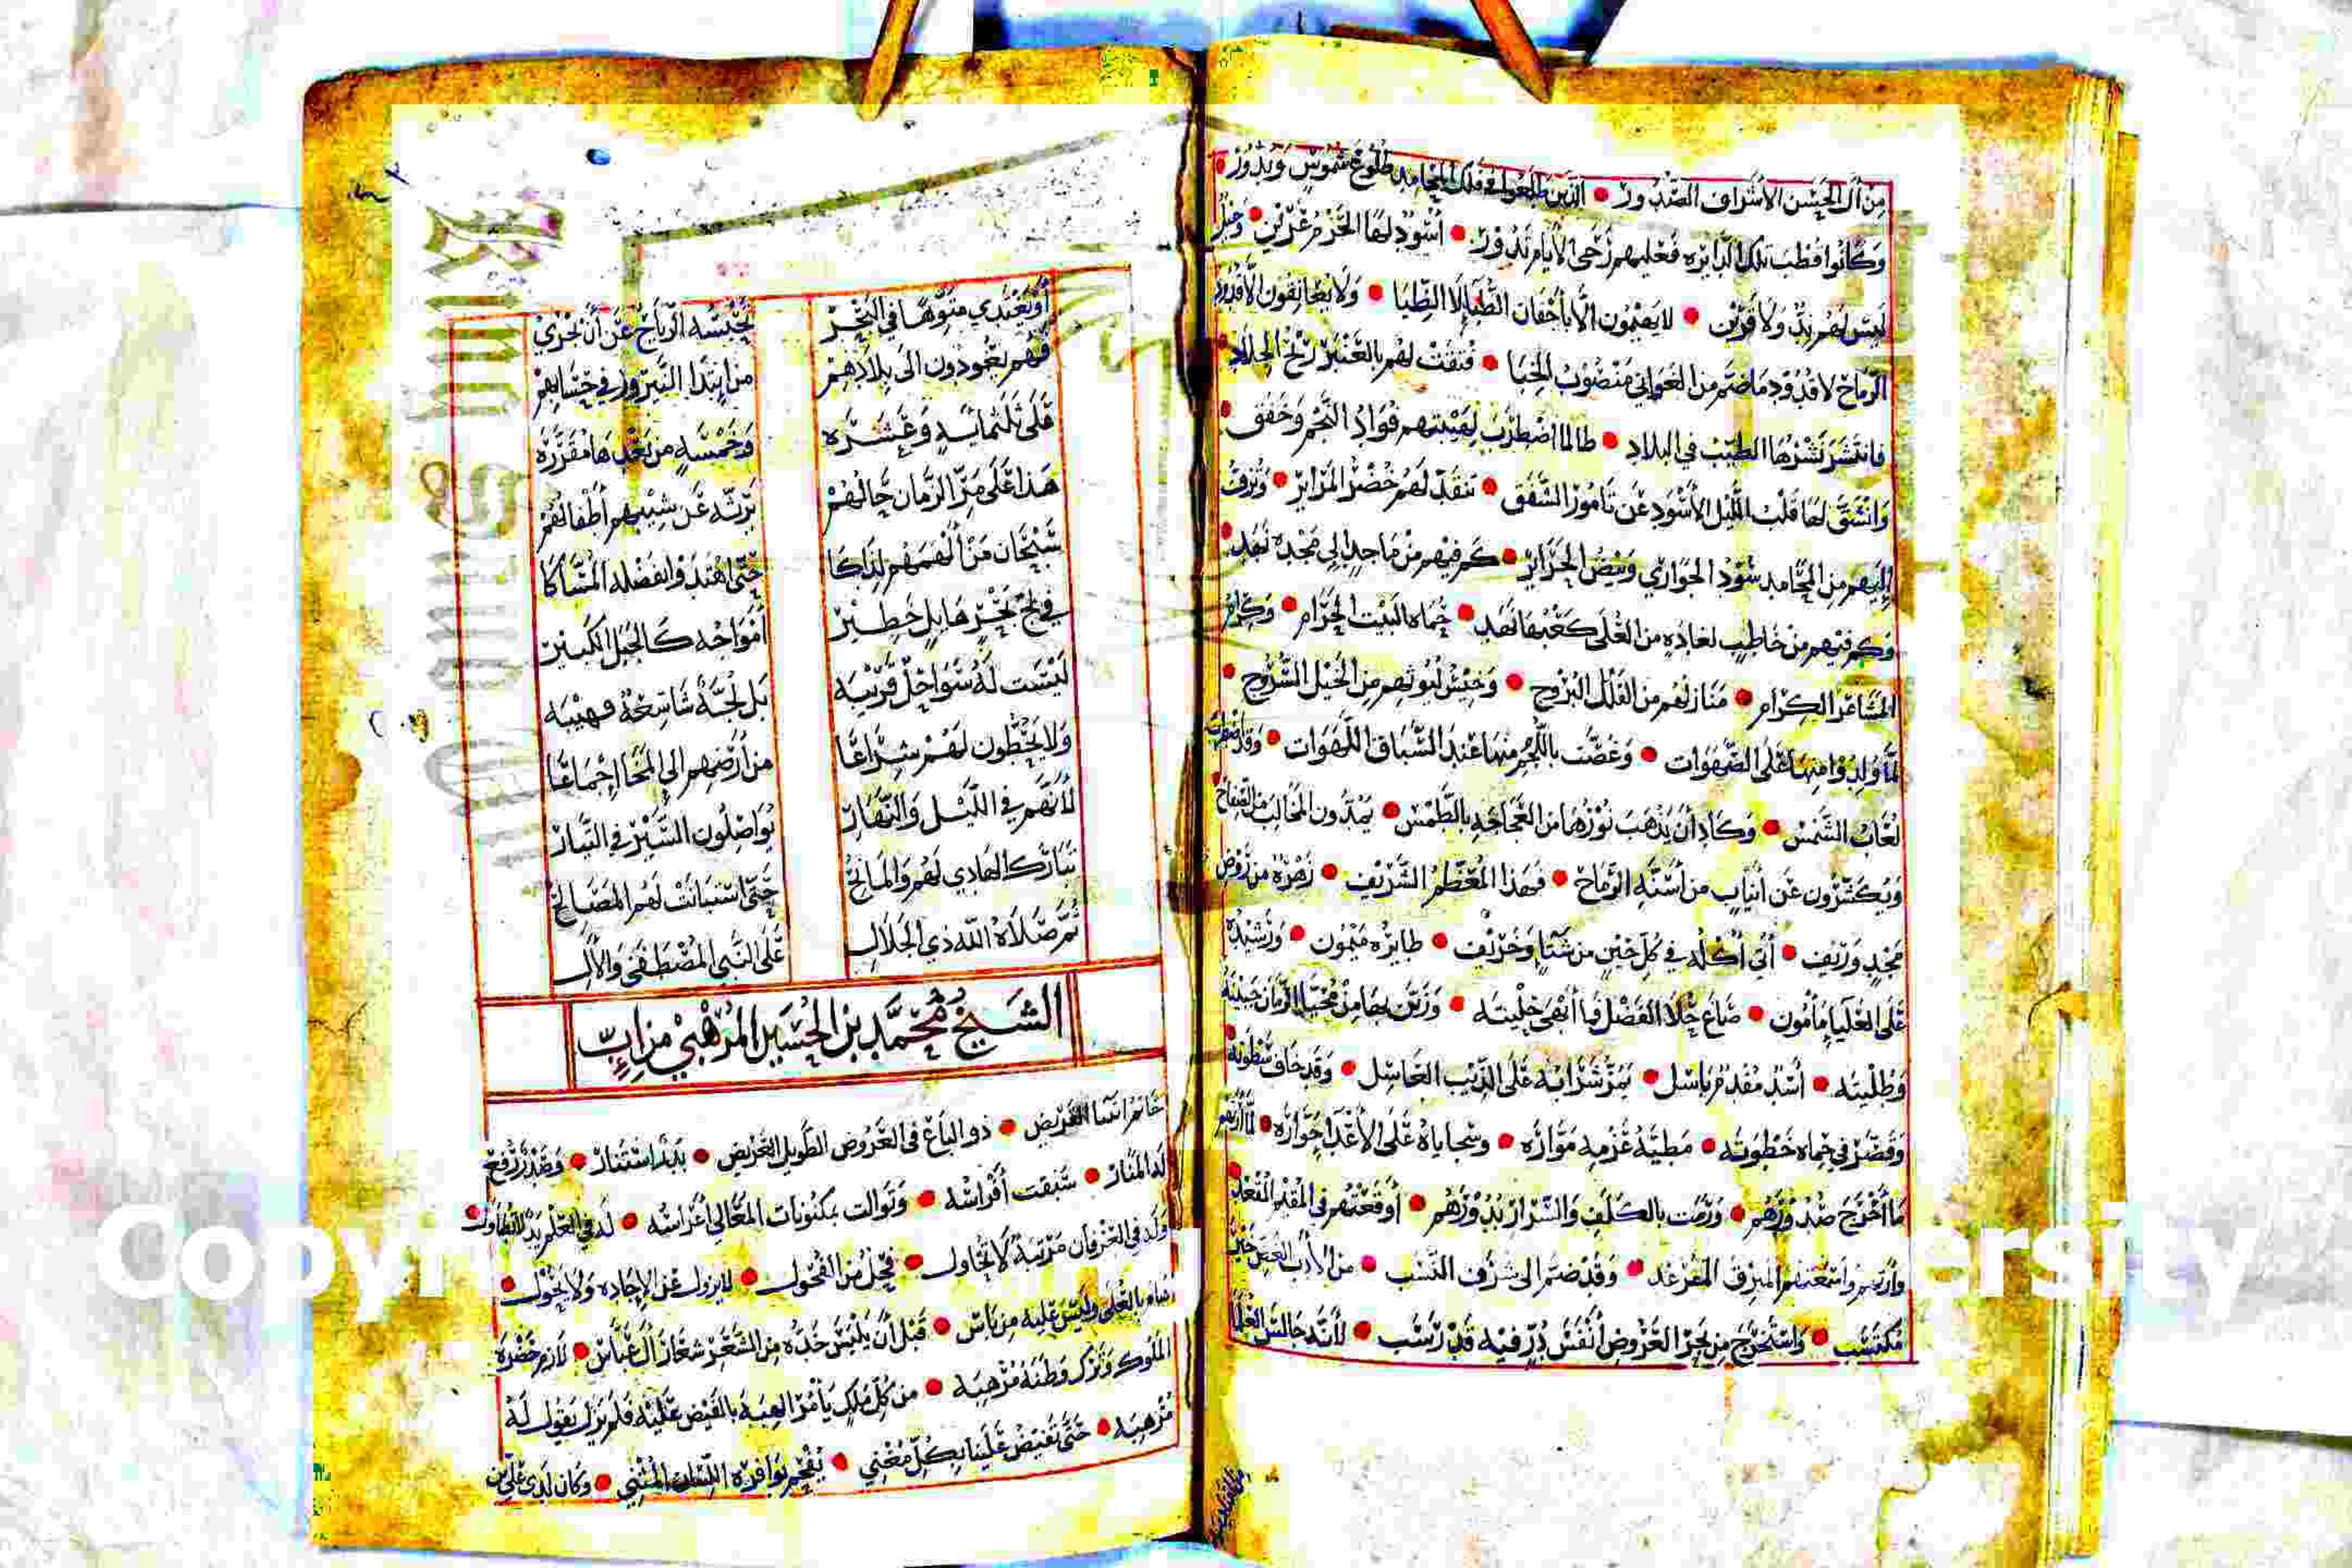 من آل الحسن الأشراف الصدور • الذين طلعوا في فلك المحامد طلوع شموس وبدور •
وكانوا قطب تلك الدائره فعليهم رحى الأيام تدور • أسود لها الحزم عرين •
ليس لهم ند ولا قرين • لا يهيمون الا بأجفان الظبا لا الظبا • ولا يعانقون الا قدود
الرماح لا قدود ماضم من الغواني منصوب الخبا • فتقت لهم بالعنبر ريح الجلاد •
فانتشر نشرها الطيب في البلاد • طالما اضطرب لهيبتهم فؤاد النجم وخفق •
وانشق لها قلب الليل الأسود عن تامور الشفق • تنقد لهم خضر المرائر • وتزف
إليهم من المحامد سود الجواري وبيض الحرائر • كم فيهم من ماجد الى مجده نهد •
وكم فيهم من خاطب لغادة من العلى كعبها نهد • حماه البيت الحرام • وكرام
المشاعر الكرام • منازلهم من القلل البروج • وخيس ليوثهم من الخيل السروج •
لما ولدوا منها على الصهوات • وغصت باللجم منها عند السباق اللهوات •
لعاب الشمس • وكاد أن يذهب نورها من العجاجه بالطمس • يمدون المخالب من الصفاح
ويكشرون عن أنياب من أسنة الرماح • فهذا المعظم الشريف • زهرة من روض
مجد وريف • أتى أكله في كل حين من شتاء وخريف • طائره ميمون •
على العليا مأمون • صاغ حلا الفضل فما أبهى حليته • وزين بها من محيا الزمان جبينه
وطليته • أسد مقدم باسل • يهز شذابه على الذيب العاسل • وقد خاف سطوته
وقصر في حماه خطوته • مطية عزمه مواره • وسجاياه على الأعدا جواره •
ما أخرج صدورهم • ورمت بالكلف والسرار بدورهم • أوقعتهم في المقيم المقعد
وأرتهم وأسمعتهم المبرق المرعد • وقد ضم الى شرف النسب • من الأدب الغض خير
مكتسب • واستخرج من بحر العروض أنفس در فيه قد رسب • لأنه جالس العلما
أو يغتدي متوها في البحر تحبسه الرياح عن أن يجري
فهم يعودون الى بلادهم من ابتدا النيروز في حسابهم
على ثلثمائة وعشره وخمسة من بعدها مقرره
هذا على مر الزمان حالهم يرثه عن شيبهم أطفالهم
سبحان من ألهمهم لذاكا حتى اهتدوا بفضله المساكا
في لج بحر هايل خطير أمواجه كالجبل الكبير
ليست له سواحل قريبه بل لجة شاسعة مهيبه
ولا يحطون لهم شراعا من أرضهم الى المخا إجماعا
لأنهم في الليل والنهار يواصلون السير في التيار
تبارك الهادي لهم والمانح حتى استبانت لهم المصالح
ثم صلاة الله ذي الجلال على النبي المصطفى والآل
الشيخ محمد بن الحسين المرهبي من إب
خاتم القريض • ذو الباع في العروض الطويل العريض • بدر استنار •
له المنار • سبقت أفراسه • وتوالت بمكنونات المعالي أغراسه • له في العلم يد لا تطاول
وله في العرفان مرتبة لا تحاول • فحل من الفحول • لا يزول عن الإجاده ولا يحول •
بالعلى وليس عليه من باس • قبل أن يلبس خده من الشعر شعار آل عباس • لازم حضرة
الملوك وترك وطنه مرهبه • من كل ملك يأمر الهبة بالفيض عليه فلم يزل يقول له
مرهبه • حتى تفيض علينا بكل مغني • يفحم بوافره اللسان المثني • وكان لدى علي بن
Copyr ersity